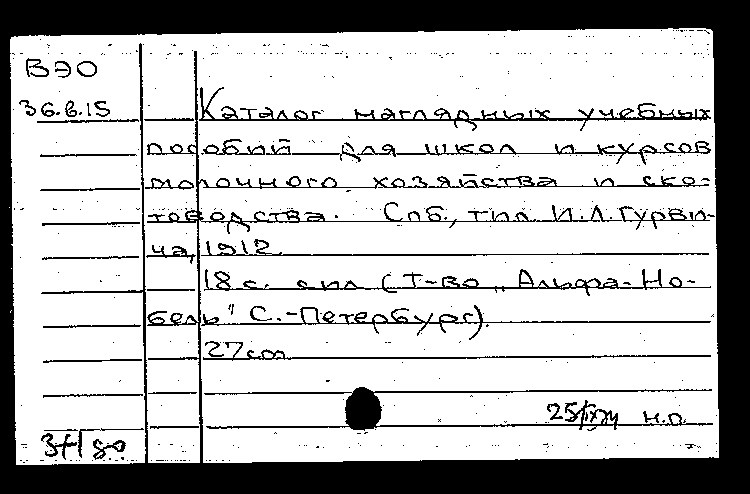 ВЭО
36.6.15
Каталог наглядных учебных
пособий для школ и курсов
молочного хозяйства и ско-
товодства. Спб., тип. И.Л. Гурви-
ча, 1912.
18 с. с ил. (Т-во „Альфа-Но-
бель" С.-Петербург).
27 см.
н.п.